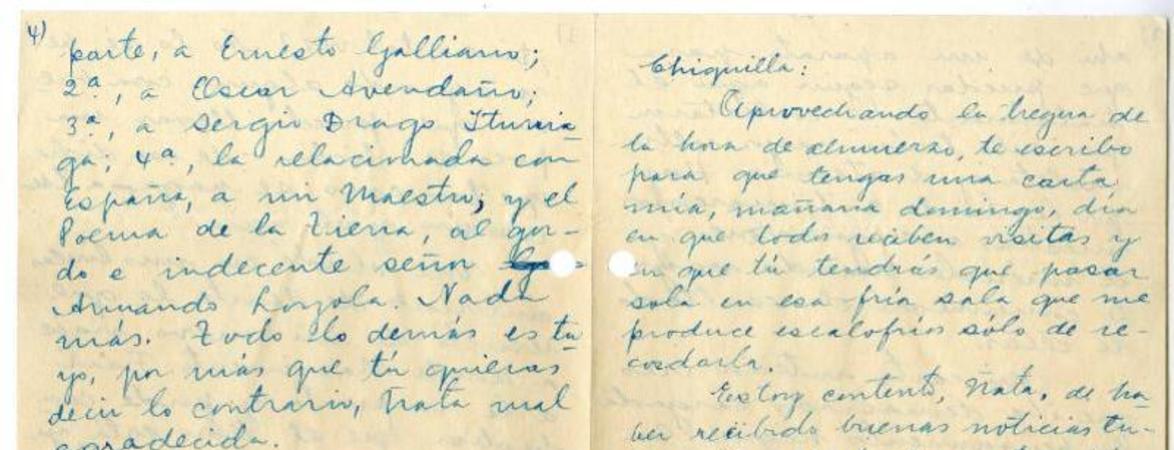 4)
parte, a Ernesto Galliano;
2ª, a Oscar Avendaño;
3ª, a Sergio Drago Iturria
ga; 4ª, la relacionada con
España, a mi Maestro, y el
Poema de la Tierra, al gor-
do e indecente señor
Armando Loyzola. Nada
más. Todo lo demás es tu
yo, por más que tú quieras
decir lo contrario, Ñata mal
agradecida.
Chiquilla:
Aprovechando la tregua de
la hora de almuerzo, te escribo
para que tengas una carta
mía, mañana domingo, día
en que todos reciben visitas y
en que tú tendrás que pasar
sola en esa fría sala que me
produce escalofríos sólo de re-
cordarla.
Estoy contento, Ñata, de ha
ber recibido buenas noticias tu-